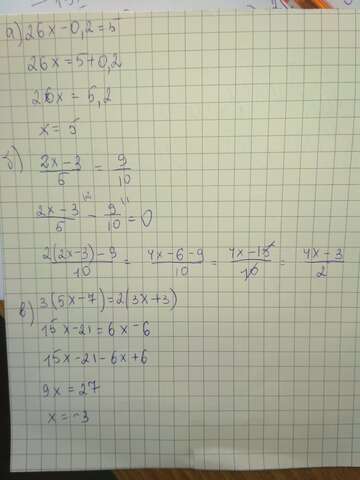 а) 26x - 0,2 = 5
26x = 5 + 0,2
26x = 5,2
x = 5
б) (2x - 3)/5 = 9/10
(2x - 3)/5 - 9/10 = 0
(2(2x-3) - 9)/10 = (4x - 6 - 9)/10 = (4x - 15)/10 = (4x - 3)/2
в) 3(5x - 7) = 2(3x + 3)
15x - 21 = 6x - 6
15x - 21 - 6x + 6
9x = 27
x = -3